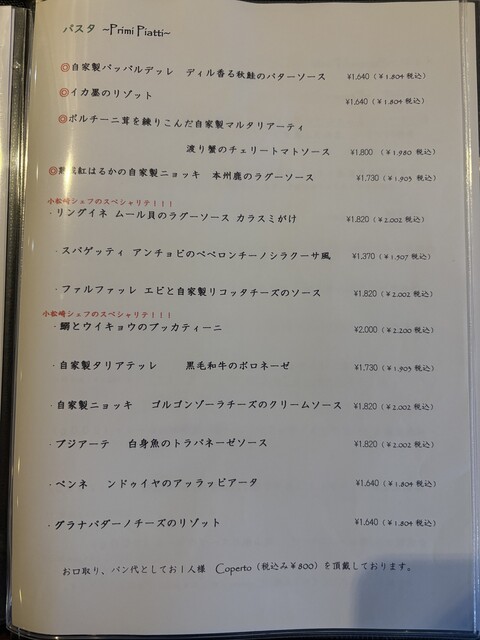 パスタ ~Primi Piatti~
◎自家製パッパルデッレ ディル香る秋鮭のバターソース ¥1,640 (¥1,804 税込)
◎イカ墨のリゾット ¥1,640 (¥1,804 税込)
◎ポルチーニ茸を練りこんだ自家製マルタリアーティ
渡り蟹のチェリートマトソース ¥1,800 (¥1,980 税込)
◎熟成紅はるかの自家製ニョッキ 本州鹿のラグーソース ¥1,730 (¥1,903 税込)
小松崎シェフのスペシャリテ!!!
・リングイネ ムール貝のラグーソース カラスミがけ ¥1,820 (¥2,002 税込)
・スパゲッティ アンチョビのペペロンチーノシラクーサ風 ¥1,370 (¥1,507 税込)
・ファルファッレ エビと自家製リコッタチーズのソース ¥1,820 (¥2,002 税込)
小松崎シェフのスペシャリテ!!!
・鰯とウイキョウのブッカティーニ ¥2,000 (¥2,200 税込)
・自家製タリアテッレ 黒毛和牛のボロネーゼ ¥1,730 (¥1,903 税込)
・自家製ニョッキ ゴルゴンゾーラチーズのクリームソース ¥1,820 (¥2,002 税込)
・ブジアーテ 白身魚のトラパネーゼソース ¥1,820 (¥2,002 税込)
・ペンネ ンドゥイヤのアッラッビアータ ¥1,640 (¥1,804 税込)
・グラナパダーノチーズのリゾット ¥1,640 (¥1,804 税込)
お口取り、パン代としてお1人様 Coperto (税込み¥800) を頂戴しております。